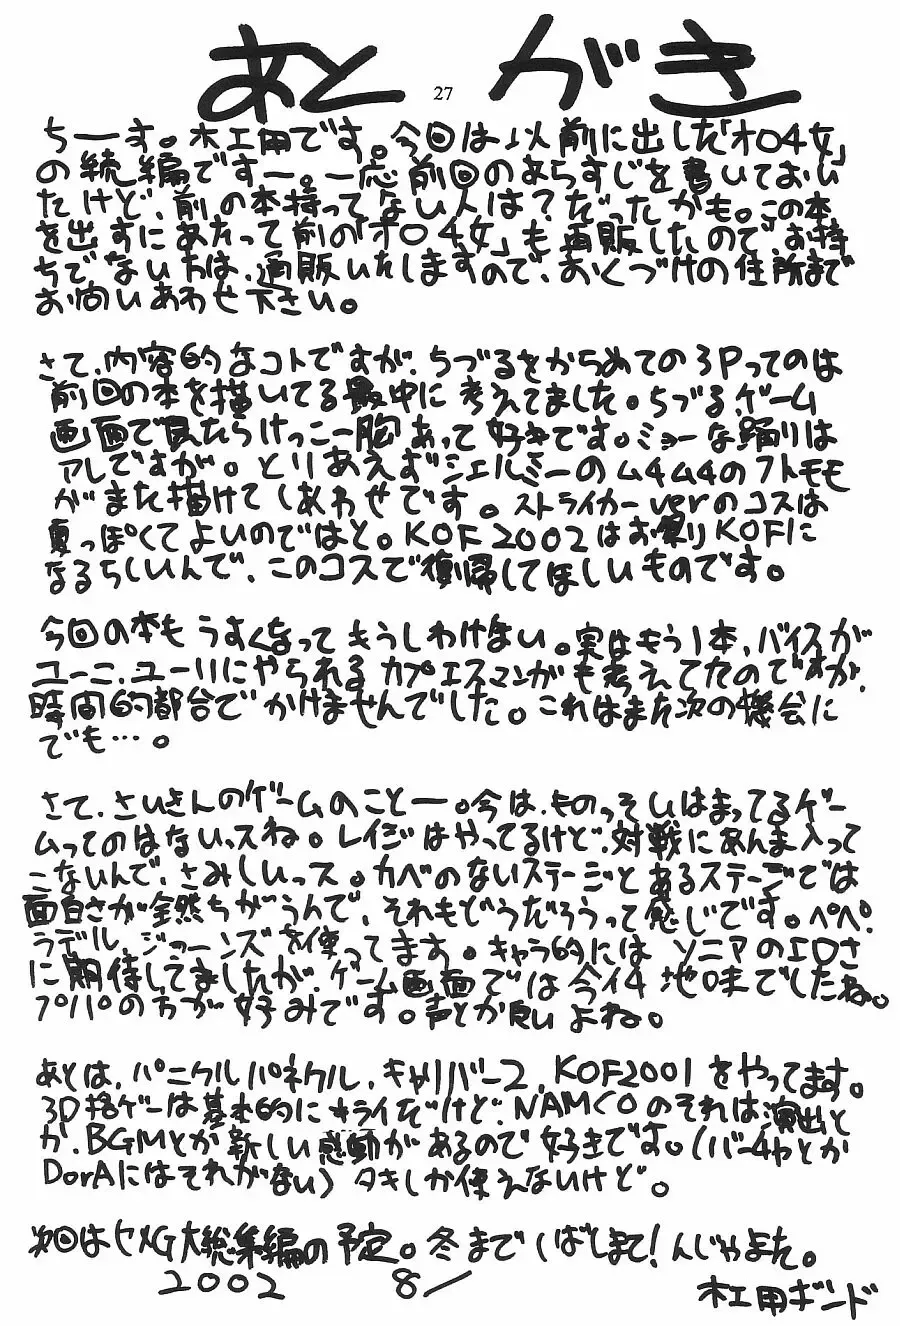 あとがき
27
ちーす。木工用です。今回は以前に出した「オロ4女」
の続編ですー。一応前回のあらすじを書いておい
たけど、前の本持ってない人は？だったかも。この本
を出すにあたって前の「オロ4女」も再販したので、お持
ちでない方は、通販いたしますので、おくづけの住所まで
お問いあわせ下さい。
さて、内容的なコトですが、ちづるをからめての3Pってのは
前回の本を描いてる最中に考えてました。ちづる、ゲーム
画面で見たらけっこー胸あって好きです。ミョーな踊りは
アレですが。とりあえずシェルミーのム4ム4のフトモモ
がまた描けてしあわせです。ストライカーverのコスは
夏っぽくてよいのではと。KOF2002はお祭りKOFに
なるらしいんで、このコスで復帰してほしいものです。
今回の本もうすくなってもうしわけない。実はもう1本、バイスが
ユーニ、ユーリにやられるカプエスマンガも考えてたのですが、
時間的都合でかけませんでした。これはまた次の機会に
でも…。
さて、さいきんのゲームのことー。今は、ものっそいはまってるゲー
ムってのはないっスね。レイジはやってるけど、対戦にあんま入って
こないんで、さみしいっス。カベのないステージとあるステージでは
面白さが全然ちがうんで、それもどうだろうって感じです。ペペ、
ラデル、ジョーンズを使ってます。キャラ的にはソニアのエロさ
に期待してましたが、ゲーム画面では今イ4地味でしたね。
プルプの方が好みです。声とか良いよね。
あとは、パニクルパネクル、キャリバー2、KOF2001をやってます。
3D格ゲーは基本的にキライだけど、NAMCOのそれは演出と
か、BGMとか新しい感動があるので好きです。（バー4ャとか
DorAにはそれがない）タキしか使えないけど。
次回はヒメG大総集編の予定。冬までしばしまて！んじゃまた。
2002 8/
木工用ボンド